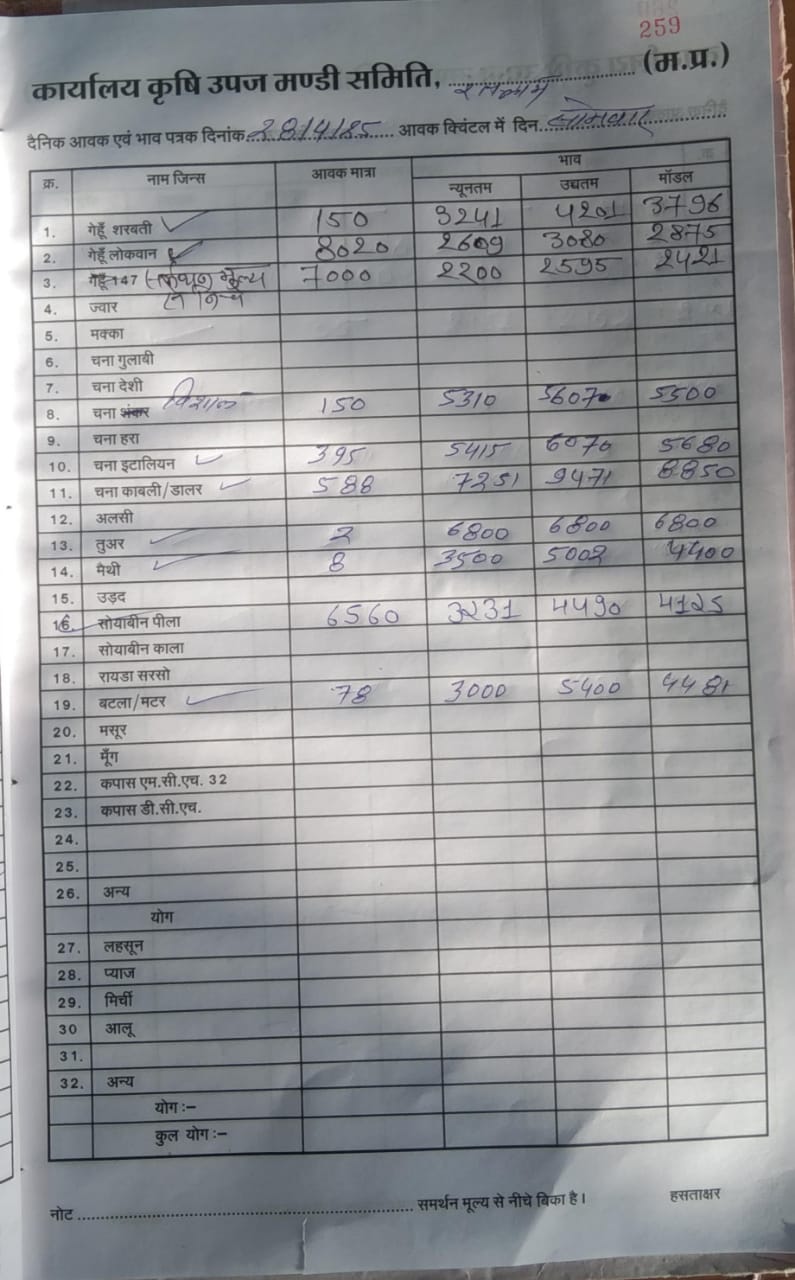 259
कार्यालय कृषि उपज मण्डी समिति, रतलाम (म.प्र.)
दैनिक आवक एवं भाव पत्रक दिनांक 28/4/25 आवक क्विंटल में दिन सोमवार
क्र. नाम जिन्स आवक मात्रा भाव
न्यूनतम उच्चतम मॉडल
1. गेहूँ शरबती 150 3241 4201 3796
2. गेहूँ लोकवान 8020 2609 3080 2875
3. गेहूँ 147 मूल्य 7000 2200 2595 2421
4. ज्वार
5. मक्का
6. चना गुलाबी
7. चना देशी
8. चना शंकर विशाल 150 5310 5607 5500
9. चना हरा
10. चना इटालियन 395 5415 6070 5680
11. चना काबली/डालर 588 7251 9471 8850
12. अलसी
13. तुअर 2 6800 6800 6800
14. मैथी 8 3500 5002 4400
15. उड़द
16. सोयाबीन पीला 6560 3231 4490 4125
17. सोयाबीन काला
18. रायडा सरसो
19. बटला/मटर 78 3000 5400 4481
20. मसूर
21. मूँग
22. कपास एम.सी.एच. 32
23. कपास डी.सी.एच.
24.
25.
26. अन्य
योग
27. लहसून
28. प्याज
29. मिर्ची
30 आलू
31.
32. अन्य
योग :–
कुल योग :–
नोट .......... समर्थन मूल्य से नीचे बिका है। हस्ताक्षर